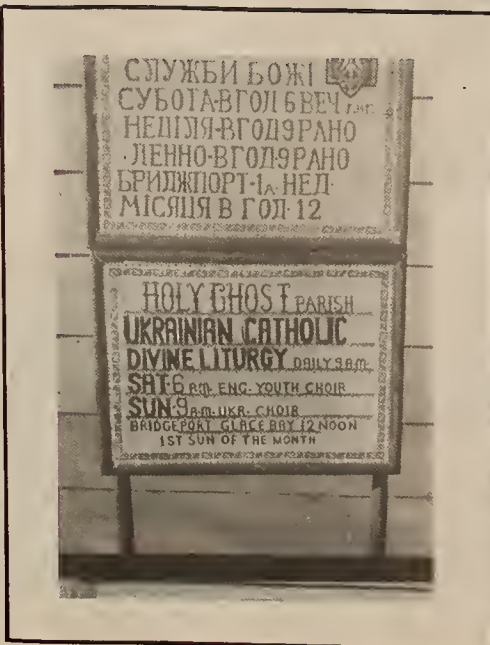 СЛУЖБИ БОЖІ
СУБОТА-В ГОД 6 ВЕЧ
НЕДІЛЯ-В ГОД 9 РАНО
·ДЕННО-В ГОД-9 РАНО
БРИДЖПОРТ-1А НЕД·
МІСЯЦЯ В ГОД·12
HOLY GHOST PARISH
UKRAINIAN CATHOLIC
DIVINE LITURGY DAILY 9 A.M.
SAT·6 P.M. ENG. YOUTH CHOIR
SUN·9 A.M. UKR. CHOIR
BRIDGEPORT GLACE BAY 12 NOON
1ST SUN OF THE MONTH